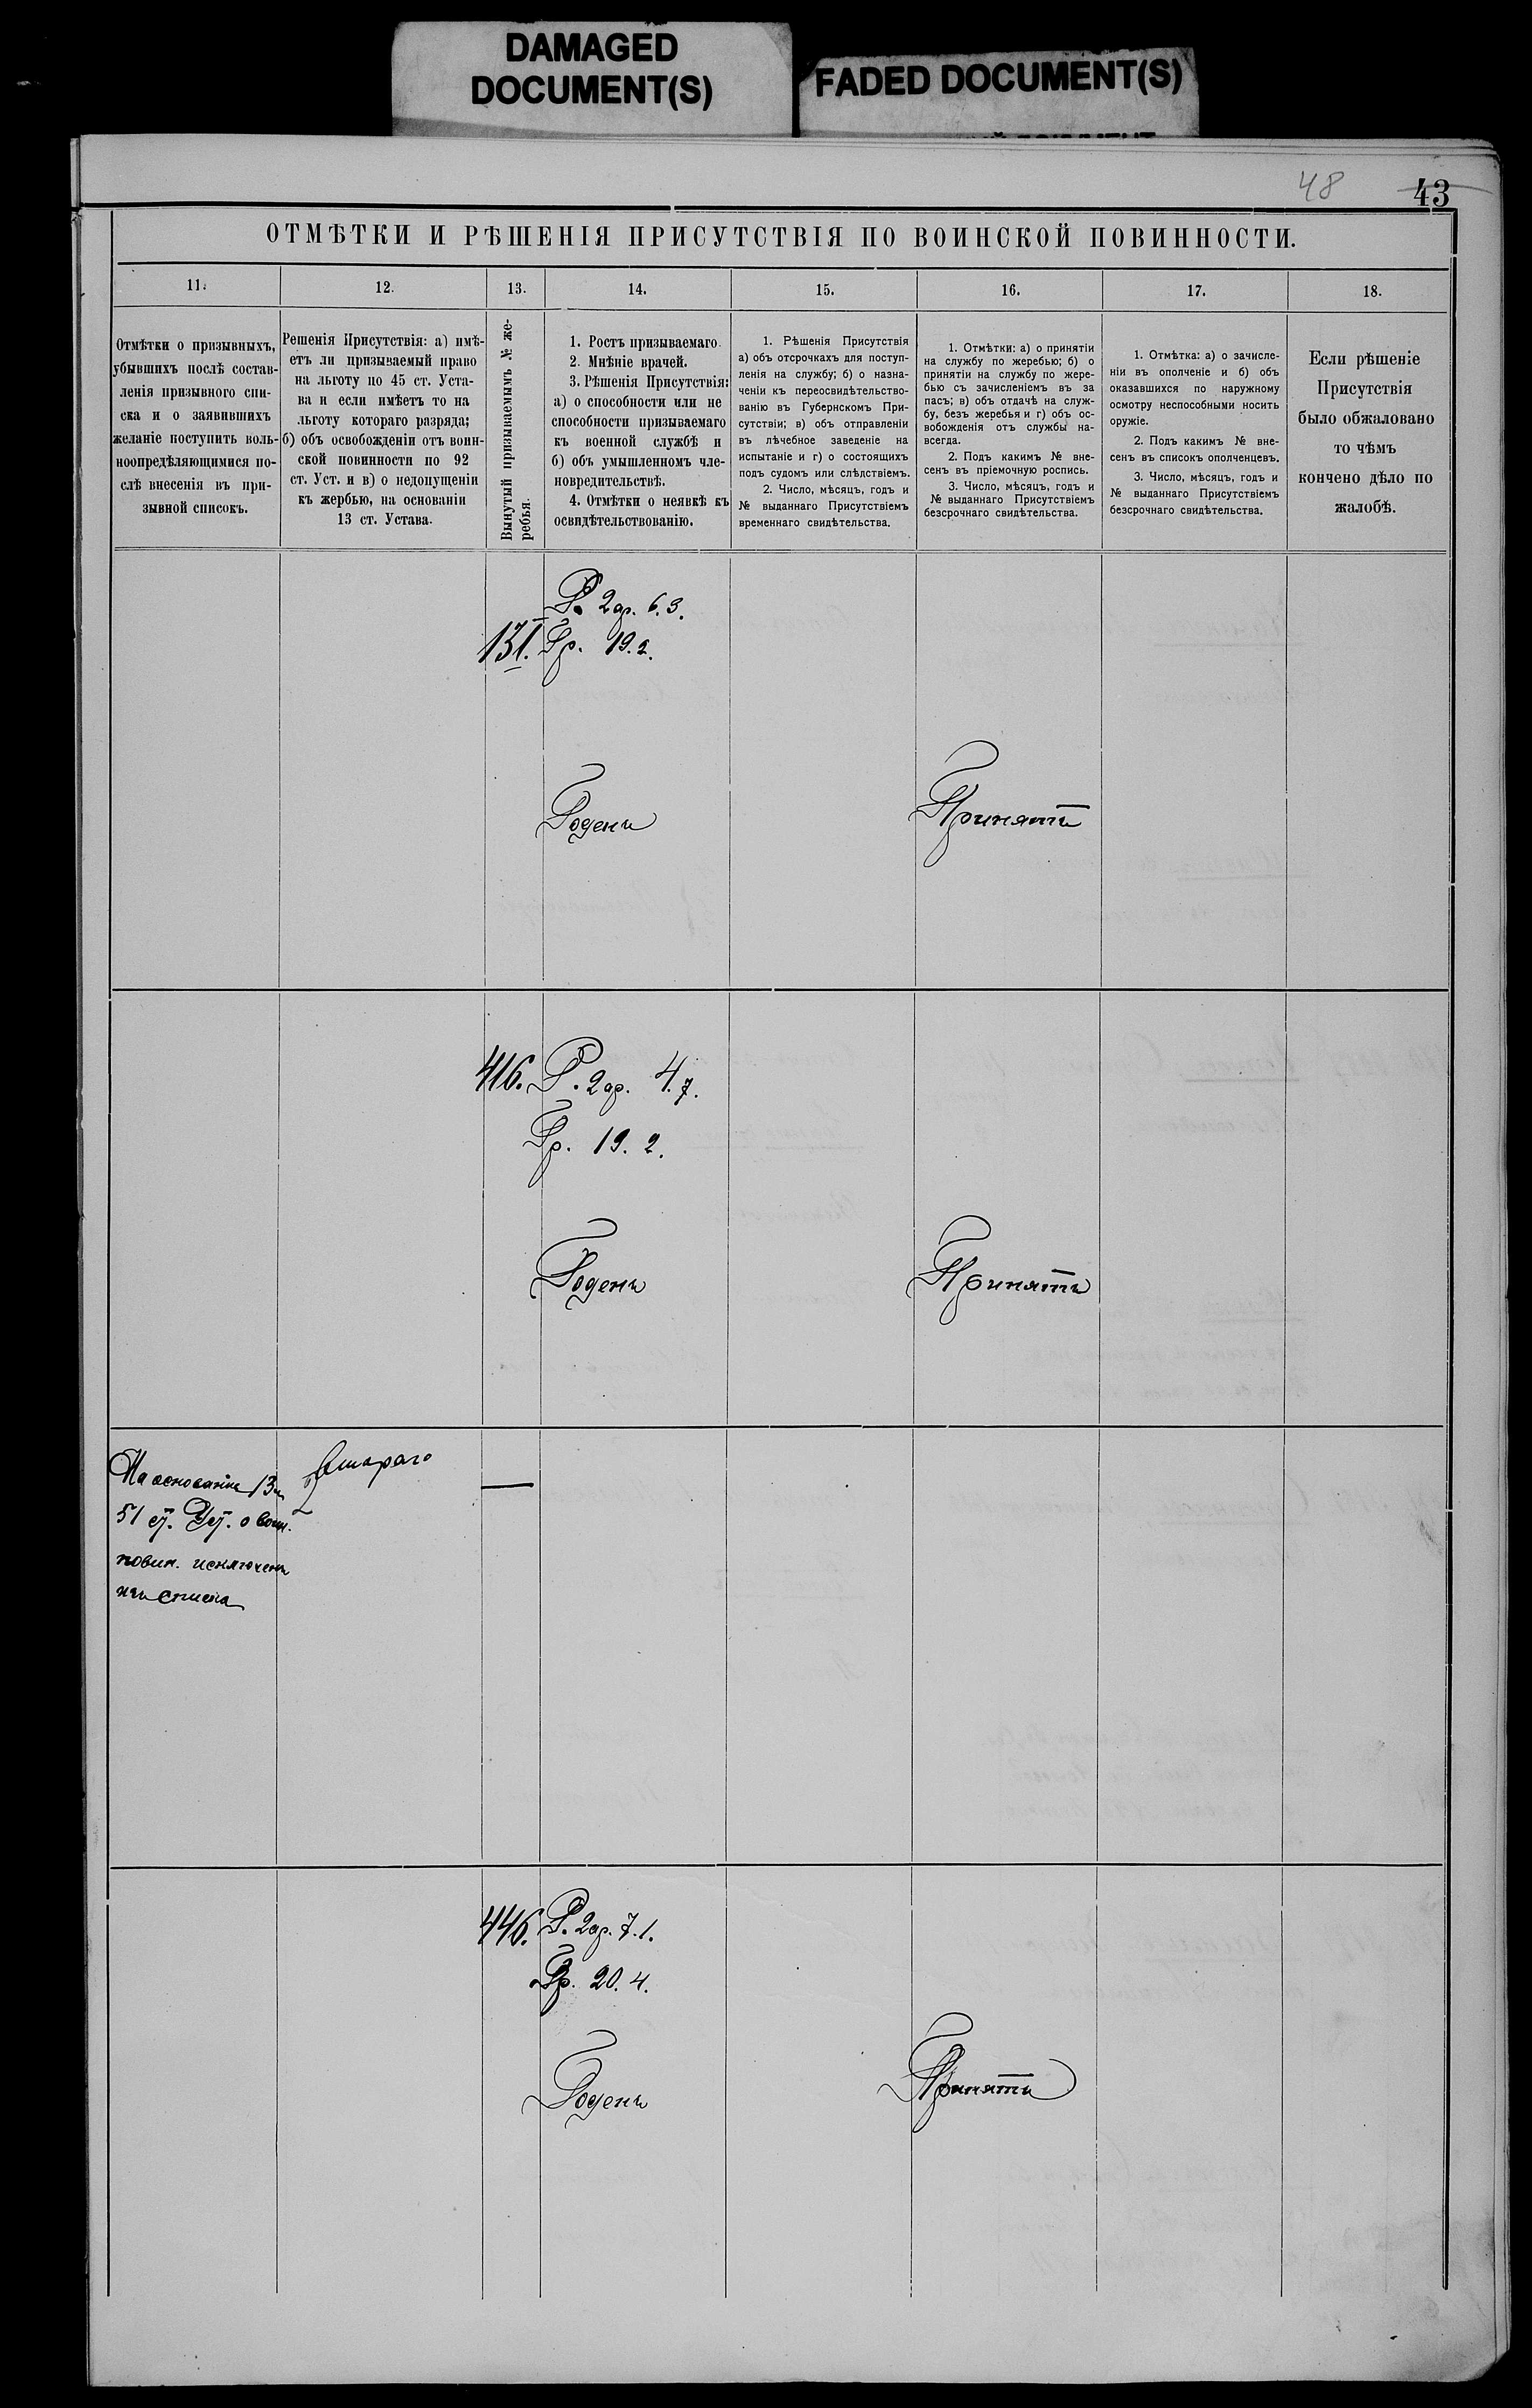 DAMAGED
DOCUMENT(S)
FADED DOCUMENT(S)
48
43
ОТМѢТКИ И РѢШЕНІЯ ПРИСУТСТВІЯ ПО ВОИНСКОЙ ПОВИННОСТИ.
11.
Отмѣтки о призывныхъ,
убывшихъ послѣ состав-
ленія призывного спи-
ска и о заявившихъ
желаніе поступить воль-
ноопредѣляющимися по-
слѣ внесенія въ при-
зывной списокъ.
12.
Решенія Присутствія: а) имѣ-
етъ ли призываемый право
на льготу по 45 ст. Уста-
ва и если имѣетъ то на
льготу котораго разряда;
б) объ освобожденіи отъ воин-
ской повинности по 92
ст. Уст. и в) о недопущеніи
къ жербью, на основаніи
13 ст. Устава.
13.
Вынутый призываемымъ № же-
ребья.
14.
1. Ростъ призываемаго.
2. Мнѣніе врачей.
3. Рѣшенія Присутствія:
а) о способности или не
способности призываемаго
къ военной службѣ и
б) объ умышленномъ чле-
новредительствѣ.
4. Отмѣтки о неявкѣ къ
освидѣтельствованію.
15.
1. Рѣшенія Присутствія
а) объ отсрочкахъ для поступ-
ленія на службу; б) о назна-
ченіи къ переосвидѣтельство-
ванію въ Губернскомъ При-
сутствіи; в) объ отправленіи
въ лѣчебное заведеніе на
испытаніе и г) о состоящихъ
подъ судомъ или слѣдствіемъ.
2. Число, мѣсяцъ, годъ и
№ выданнаго Присутствіемъ
временнаго свидѣтельства.
16.
1. Отмѣтки: а) о принятіи
на службу по жеребью; б) о
принятіи на службу по жере-
бью съ зачисленіемъ въ за
пасъ; в) объ отдачѣ на служ-
бу, безъ жеребья и г) объ ос-
вобожденія отъ службы на-
всегда.
2. Подъ какимъ № вне-
сенъ въ пріемочную роспись.
3. Число, мѣсяцъ, годъ и
№ выданнаго Присутствіемъ
безсрочнаго свидѣтельства.
17.
1. Отмѣтка: а) о зачисле-
ніи въ ополченіе и б) объ
оказавшихся по наружному
осмотру неспособными носить
оружіе.
2. Подъ какимъ № вне-
сенъ въ списокъ ополченцевъ.
3. Число, мѣсяцъ, годъ и
№ выданнаго Присутствіемъ
безсрочнаго свидѣтельства.
18.
Если рѣшеніе
Присутствія
было обжаловано
то чѣмъ
кончено дѣло по
жалобѣ.
Р. 2 ар. 6.3.
131. Гр. 19.2.
Годенъ
Принятъ
416. Р. 2 ар. 4.7.
Гр. 19. 2.
Годенъ
Принятъ
На основаніи 13 и
51 ст. Уст. о воин.
повин. исключенъ
изъ списка
Втораго
—
446. Р. 2 ар. 7.1.
Гр. 20.4.
Годенъ
Принятъ